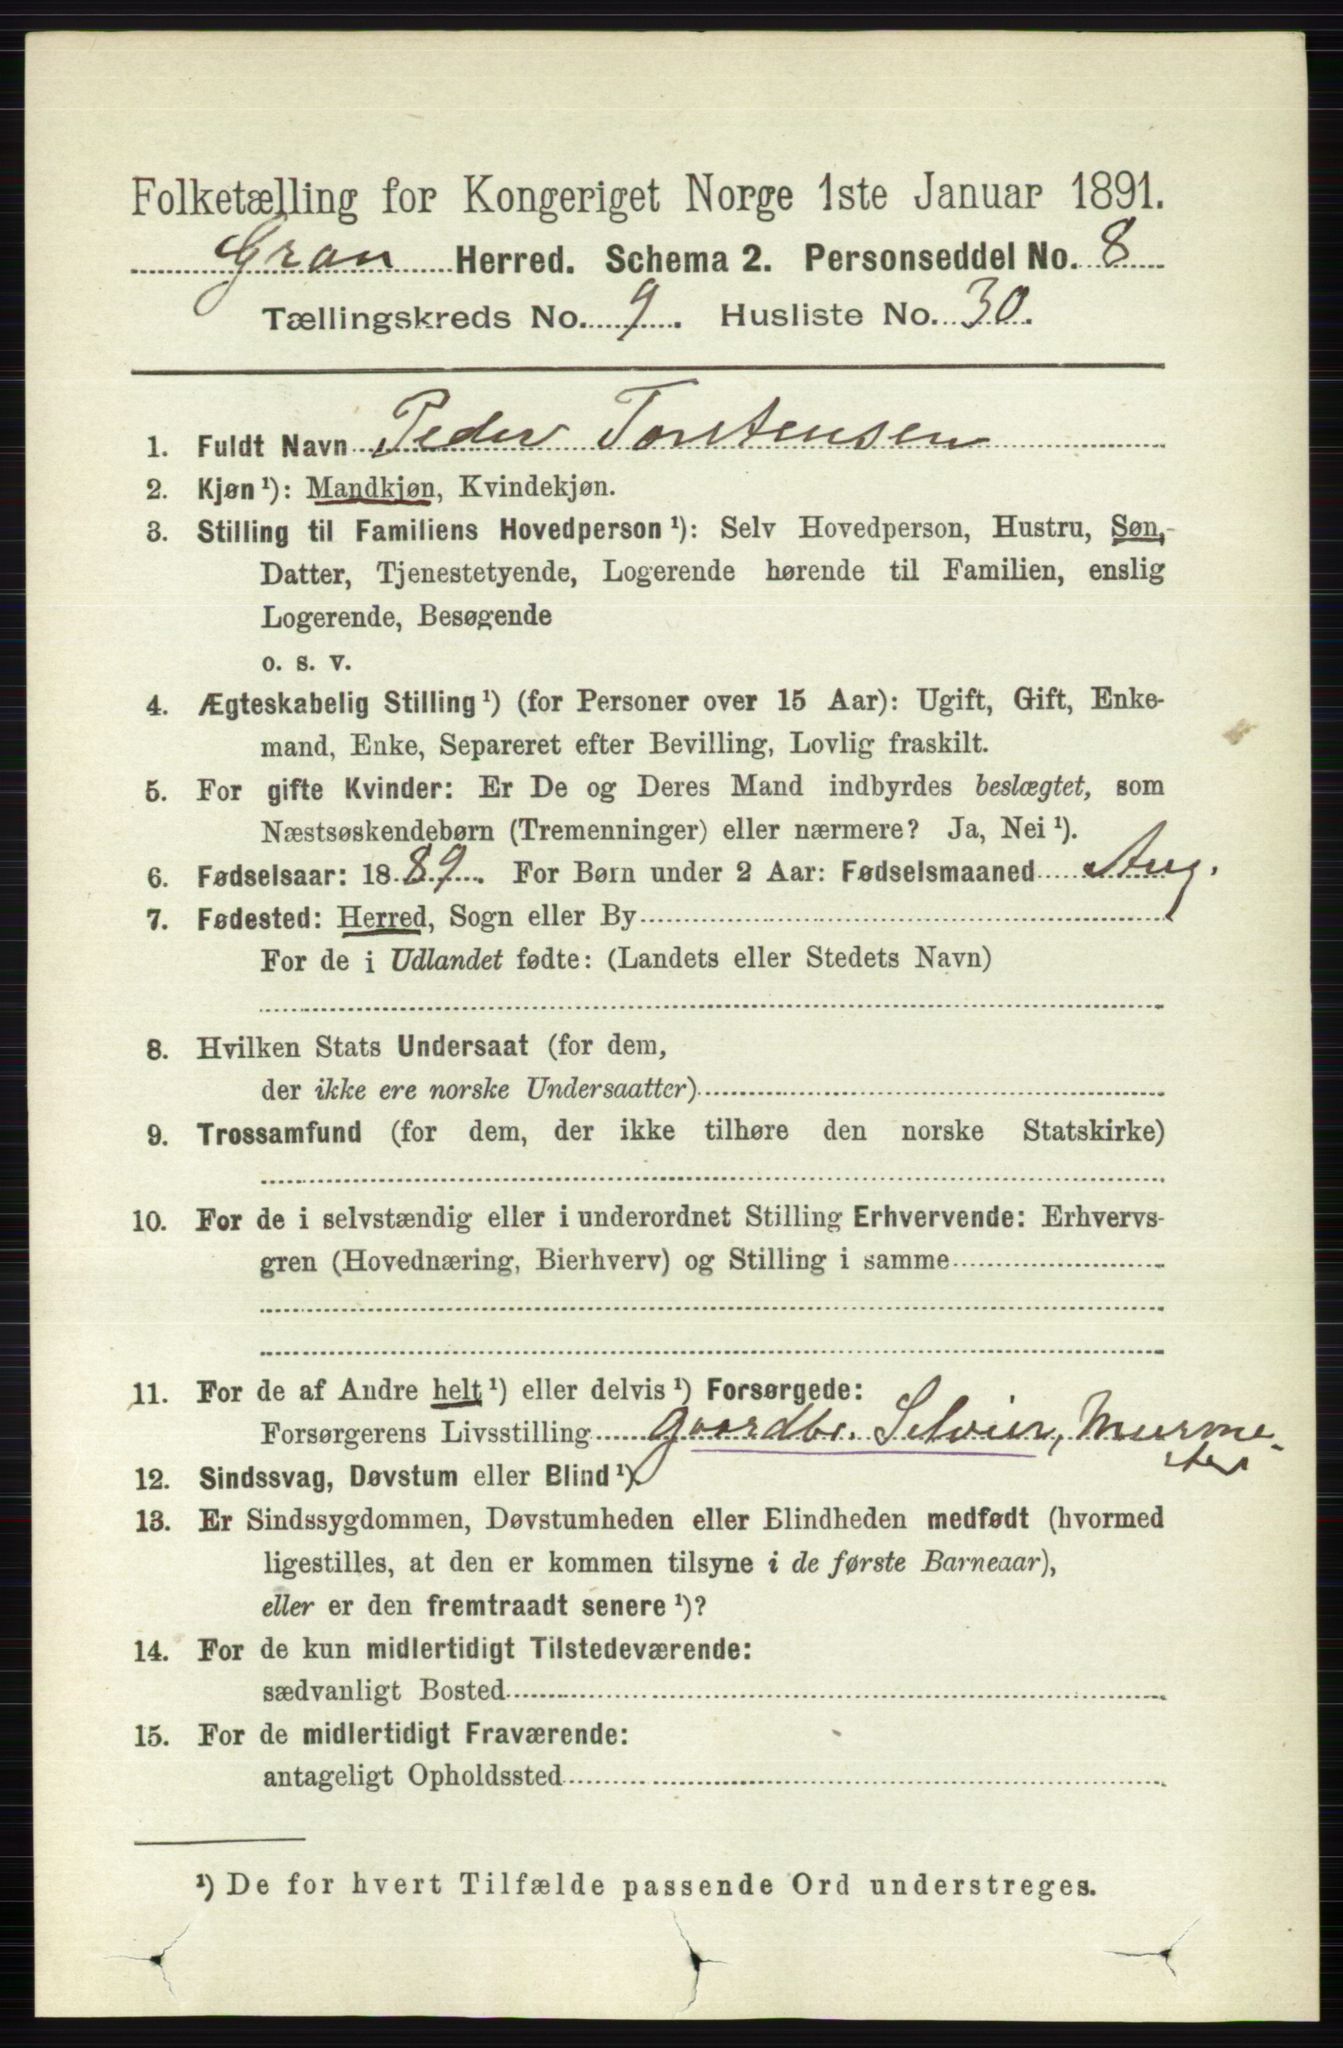 Folketælling for Kongeriget Norge 1ste Januar 1891.
Gran Herred. Schema 2. Personseddel No. 8
Tællingskreds No. 9. Husliste No. 30.
1. Fuldt Navn Peder Torstensen
2. Kjøn¹): Mandkjøn, Kvindekjøn.
3. Stilling til Familiens Hovedperson¹): Selv Hovedperson, Hustru, Søn,
Datter, Tjenestetyende, Logerende hørende til Familien, enslig
Logerende, Besøgende
o. s. v.
4. Ægteskabelig Stilling¹) (for Personer over 15 Aar): Ugift, Gift, Enke-
mand, Enke, Separeret efter Bevilling, Lovlig fraskilt.
5. For gifte Kvinder: Er De og Deres Mand indbyrdes beslægtet, som
Næstsøskendebørn (Tremenninger) eller nærmere? Ja, Nei¹).
6. Fødselsaar: 1889. For Børn under 2 Aar: Fødselsmaaned Aug.
7. Fødested: Herred, Sogn eller By
For de i Udlandet fødte: (Landets eller Stedets Navn)
8. Hvilken Stats Undersaat (for dem,
der ikke ere norske Undersaatter)
9. Trossamfund (for dem, der ikke tilhøre den norske Statskirke)
10. For de i selvstændig eller i underordnet Stilling Erhvervende: Erhvervs-
gren (Hovednæring, Bierhverv) og Stilling i samme
11. For de af Andre helt¹) eller delvis¹) Forsørgede:
Forsørgerens Livsstilling gaardbr. Selveier, Murme-
ster
12. Sindssvag, Døvstum eller Blind¹).
13. Er Sindssygdommen, Døvstumheden eller Blindheden medfødt (hvormed
ligestilles, at den er kommen tilsyne i de første Barneaar),
eller er den fremtraadt senere¹)?
14. For de kun midlertidigt Tilstedeværende:
sædvanligt Bosted
15. For de midlertidigt Fraværende:
antageligt Opholdssted
¹) De for hvert Tilfælde passende Ord understreges.